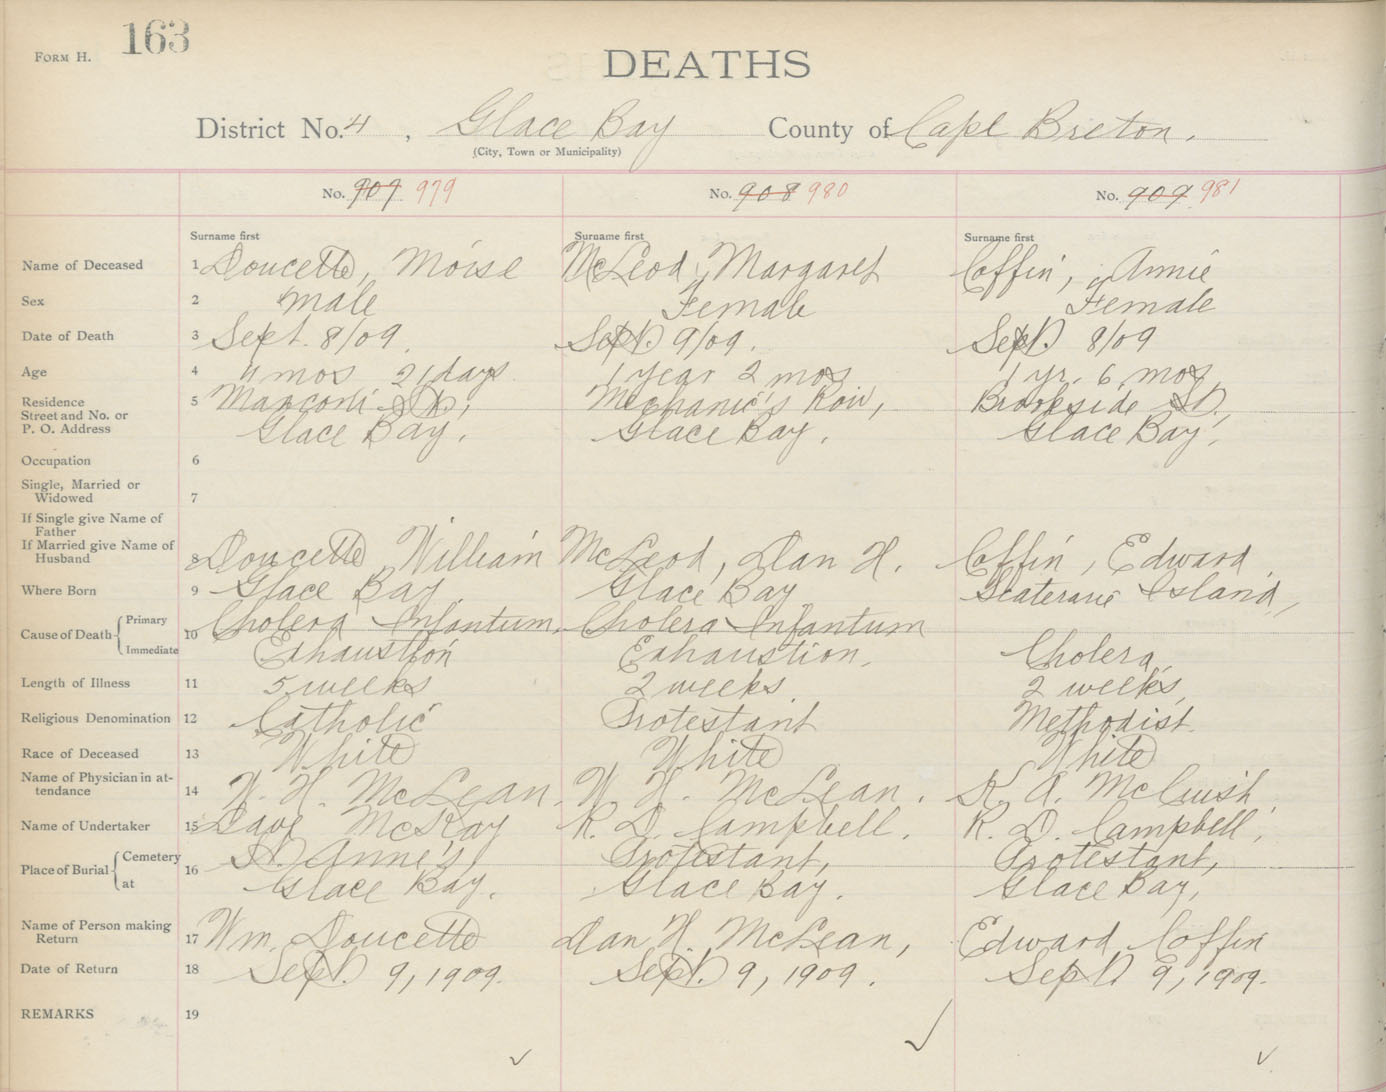 FORM H. 163
DEATHS
District No. 4, Glace Bay County of Cape Breton.
(City, Town or Municipality)
No. 907 979 No. 908 980 No. 909 981
Surname first Surname first Surname first
Name of Deceased 1 Doucette, Moise McLeod, Margaret Coffin, Annie
Sex 2 Male Female Female
Date of Death 3 Sept. 8/09. Sept. 9/09. Sept. 8/09
Age 4 4 mos 21 days 1 year 2 mos 1 yr. 6 mos
Residence 5 Marconi St., Mechanic's Row, Brookside St.,
Street and No. or
P. O. Address Glace Bay. Glace Bay. Glace Bay.
Occupation 6
Single, Married or
Widowed 7
If Single give Name of
Father
If Married give Name of
Husband 8 Doucette William McLeod, Dan H. Coffin, Edward
Where Born 9 Glace Bay Glace Bay Scaterarie Island,
Cause of Death Primary 10 Cholera Infantum. Cholera Infantum
Immediate Exhaustion Exhaustion. Cholera,
Length of Illness 11 5 weeks 2 weeks. 2 weeks,
Religious Denomination 12 Catholic Protestant Methodist.
Race of Deceased 13 White White White
Name of Physician in at-
tendance 14 W. H. McLean. W. H. McLean. K. A. McCuish,
Name of Undertaker 15 Dave McKay R. D. Campbell. R. D. Campbell,
Place of Burial Cemetery 16 St. Anne's Protestant, Protestant,
at Glace Bay. Glace Bay. Glace Bay,
Name of Person making
Return 17 Wm. Doucette Dan H. McLean, Edward Coffin
Date of Return 18 Sept. 9, 1909. Sept. 9, 1909. Sept 9, 1909.
REMARKS 19